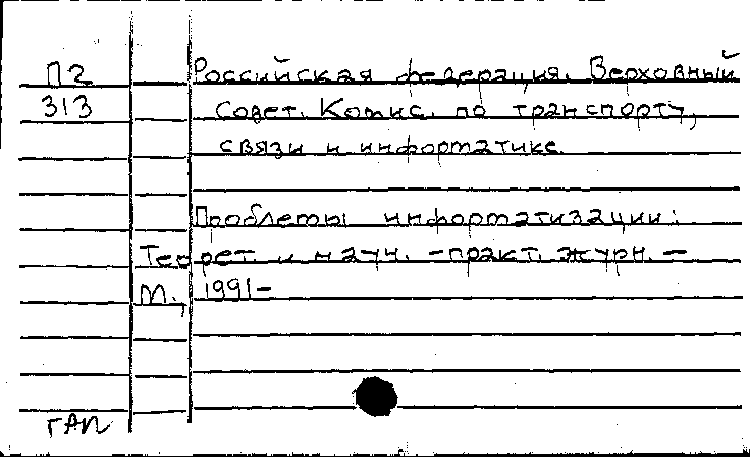 П2 Российская федерация. Верховный
313 Совет. Комис. по транспорту,
связи и информатике.
Проблемы информатизации:
Теорет. и науч. -практ. журн. —
М., 1991-
ГАП